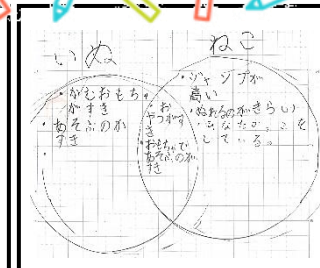 いぬ
ねこ
・かむおもちゃ
がすき
・あそぶのが
すき
・お
やつがす
き
・おもちゃで
あそぶのが
すき
・ジャンプが
高い
・ぬれるのがきらい
をしている。